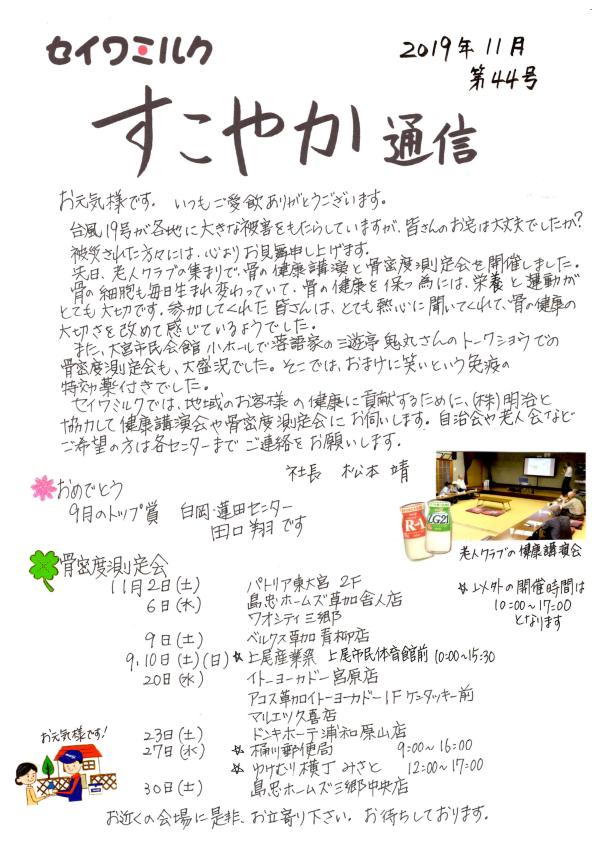 セイワミルク
2019年11月
第44号
すこやか通信
お元気様です。いつもご愛飲ありがとうございます。
台風19号が各地に大きな被害をもたらしていますが、皆さんのお宅は大丈夫でしたか?
被災された方々には、心よりお見舞申し上げます。
先日、老人クラブの集まりで、骨の健康講演と骨密度測定会を開催しました。
骨の細胞も毎日生まれ変わっていて、骨の健康を保つ為には、栄養と運動が
とても大切です。参加してくれた皆さんは、とても熱心に聞いてくれて、骨の健康の
大切さを改めて感じているようでした。
また、大宮市民会館小ホールで落語家の三遊亭鬼丸さんのトークショウでの
骨密度測定会も、大盛況でした。そこでは、おまけに笑いという免疫の
特効薬付きでした。
セイワミルクでは、地域のお客様の健康に貢献するために、(株)明治と
協力して健康講演会や骨密度測定会にお伺いします。自治会や老人会など
ご希望の方は各センターまでご連絡をお願いします。
社長 松本 靖
おめでとう
9月のトップ賞 白岡・蓮田センター
田口 翔ヲです
R-1
LG21
老人クラブの健康講演会
骨密度測定会
11月2日(土) パトリア東大宮 2F
6日(水) 島忠ホームズ草加舎人店
ワオシティ三郷
9日(土) ベルクス草加青柳店
9,10日(土)(日) ☆上尾産業祭 上尾市民体育館前 10:00~15:30
20日(水) イトーヨーカドー宮原店
アコス草加イトーヨーカドー1Fケンタッキー前
マルエツ久喜店
23日(土) ドンキホーテ浦和原山店
27日(水) ☆桶川郵便局 9:00~16:00
☆ゆけむり横丁みさと 12:00~17:00
30日(土) 島忠ホームズ三郷中央店
☆以外の開催時間は
10:00~17:00
となります
お元気様です!
お近くの会場に是非、お立寄り下さい。お待ちしております。